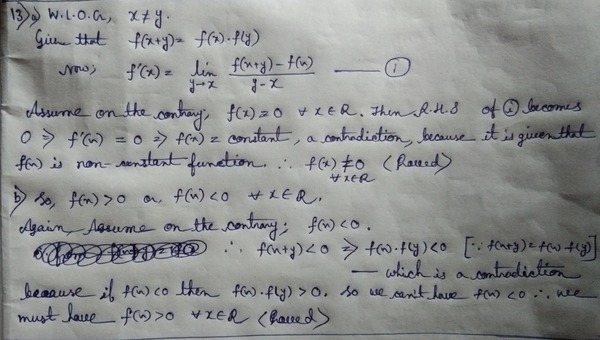 13) a) W.L.O.G, x ≠ y.
Given that f(x+y) = f(x)·f(y)
Now; f'(x) = lim y→x f(x+y) - f(x) / y - x — (i)
Assume on the contrary; f(x) = 0 ∀ x ∈ R. Then R.H.S of (i) becomes
0 ⇒ f'(x) = 0 ⇒ f(x) = constant, a contradiction, because it is given that
f(x) is non-constant function. ∴ f(x) ≠ 0 ∀ x ∈ R (Proved)
b) So, f(x) > 0 or, f(x) < 0 ∀ x ∈ R.
Again, Assume on the contrary; f(x) < 0.
∴ f(x+y) < 0 ⇒ f(x)·f(y) < 0 [∵ f(x+y) = f(x)·f(y)]
— which is a contradiction
because if f(x) < 0 then f(x)·f(y) > 0. So we can't have f(x) < 0 ∴ we
must have f(x) > 0 ∀ x ∈ R (Proved)